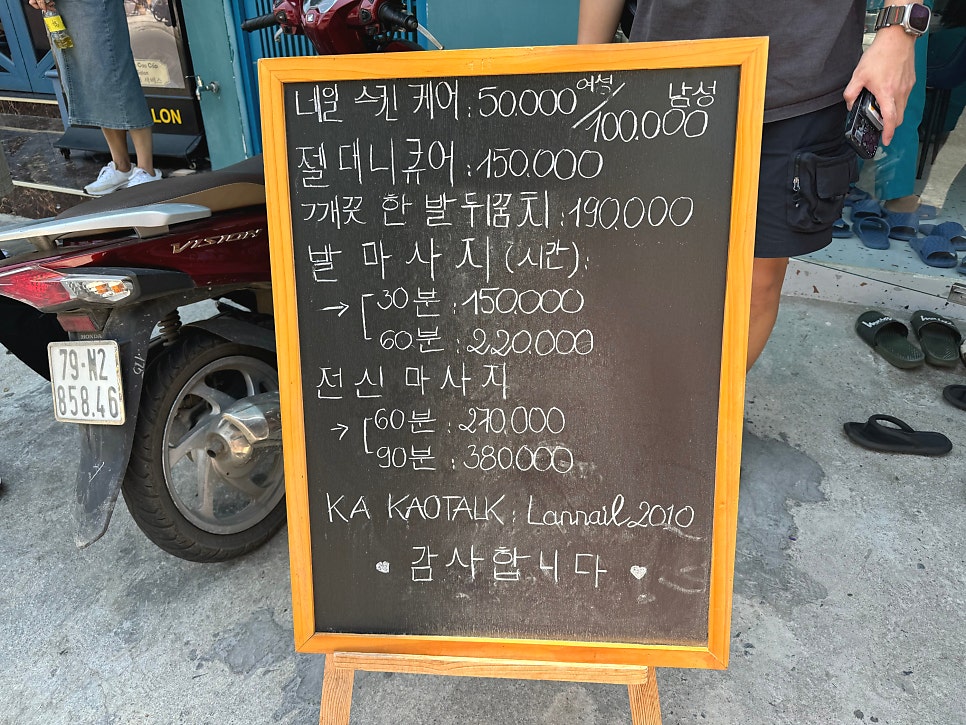 네일 스킨 케어 : 50.000 여성 / 100.000 남성
젤 대니큐어 : 150.000
깨끗 한 발 뒤꿈치 : 190.000
발 마 사 지 (시간) :
→ [ 30분 : 150.000
60분 : 220.000
전 신 마 사 지
→ [ 60분 : 270.000
90분 : 380.000
KA KAOTALK : Lannail 2010
감 사 합 니 다
VISION
HONDA
79-N2
858.46
LON